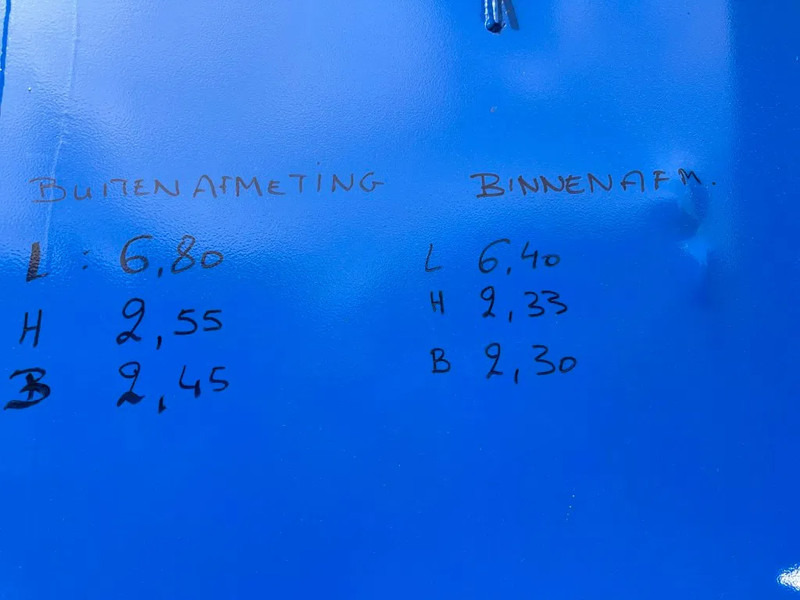 BUITENAFMETING BINNENAFM.
L : 6,80 L 6,40
H 2,55 H 2,33
B 2,45 B 2,30